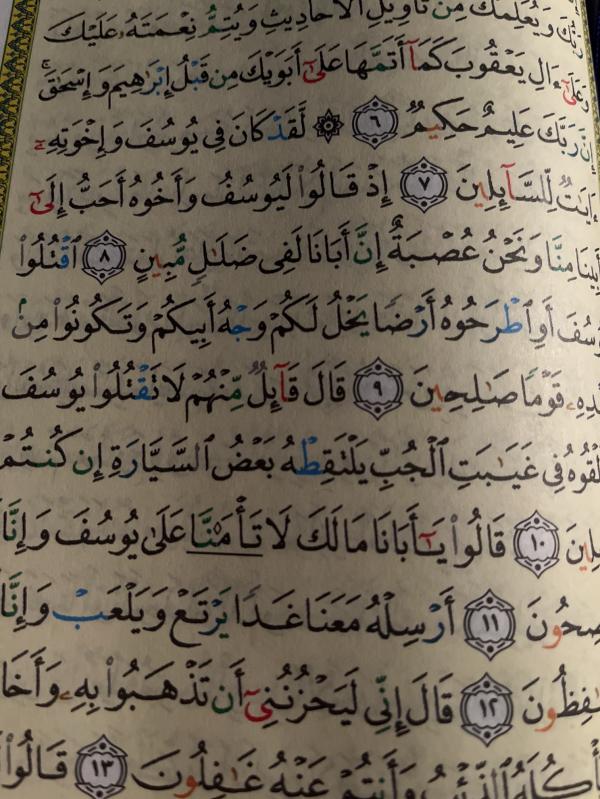 رَبُّكَ وَيُعَلِّمُكَ مِن تَأْوِيلِ ٱلْأَحَادِيثِ وَيُتِمُّ نِعْمَتَهُۥ عَلَيْكَ
وَعَلَىٰٓ ءَالِ يَعْقُوبَ كَمَآ أَتَمَّهَا عَلَىٰٓ أَبَوَيْكَ مِن قَبْلُ إِبْرَٰهِيمَ وَإِسْحَٰقَ ۚ
إِنَّ رَبَّكَ عَلِيمٌ حَكِيمٌ ٦ ۞ لَّقَدْ كَانَ فِى يُوسُفَ وَإِخْوَتِهِۦٓ
ءَايَٰتٌ لِّلسَّآئِلِينَ ٧ إِذْ قَالُوا۟ لَيُوسُفُ وَأَخُوهُ أَحَبُّ إِلَىٰٓ
أَبِينَا مِنَّا وَنَحْنُ عُصْبَةٌ إِنَّ أَبَانَا لَفِى ضَلَٰلٍ مُّبِينٍ ٨ ٱقْتُلُوا۟
يُوسُفَ أَوِ ٱطْرَحُوهُ أَرْضًا يَخْلُ لَكُمْ وَجْهُ أَبِيكُمْ وَتَكُونُوا۟ مِنۢ
بَعْدِهِۦ قَوْمًا صَٰلِحِينَ ٩ قَالَ قَآئِلٌ مِّنْهُمْ لَا تَقْتُلُوا۟ يُوسُفَ
وَأَلْقُوهُ فِى غَيَٰبَتِ ٱلْجُبِّ يَلْتَقِطْهُ بَعْضُ ٱلسَّيَّارَةِ إِن كُنتُمْ
فَٰعِلِينَ ١٠ قَالُوا۟ يَٰٓأَبَانَا مَالَكَ لَا تَأْمَ۫نَّا عَلَىٰ يُوسُفَ وَإِنَّا
لَهُۥ لَنَٰصِحُونَ ١١ أَرْسِلْهُ مَعَنَا غَدًا يَرْتَعْ وَيَلْعَبْ وَإِنَّا
لَهُۥ لَحَٰفِظُونَ ١٢ قَالَ إِنِّى لَيَحْزُنُنِىٓ أَن تَذْهَبُوا۟ بِهِۦ وَأَخَا
يَأْكُلَهُ ٱلذِّئْبُ وَأَنتُمْ عَنْهُ غَٰفِلُونَ ١٣ قَالُوا۟